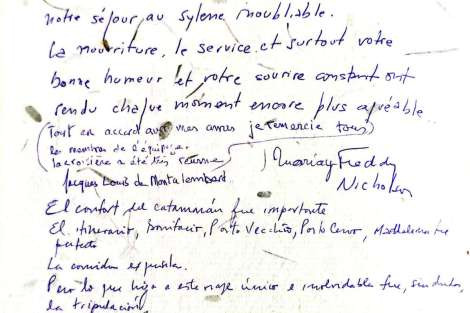 notre séjour au Sylene inoubliable.
La nourriture, le service et surtout votre
bonne humeur et votre sourire constant ont
rendu chaque moment encore plus agréable
(Tout en accord avec mes amis je remercie tous
les membres de l'équipage.
la croisière a été très réussie)
Jacques Louis de Montalembert
Freddy
El confort del catamarán fue importante
El itinerario, Bonifacio, Porto Vecchio, Porto Cervo, Maddalena fue
perfecto
La comida exquisita.
Pero lo que hizo a este viaje único e inolvidable fue, sin duda,
la tripulación.